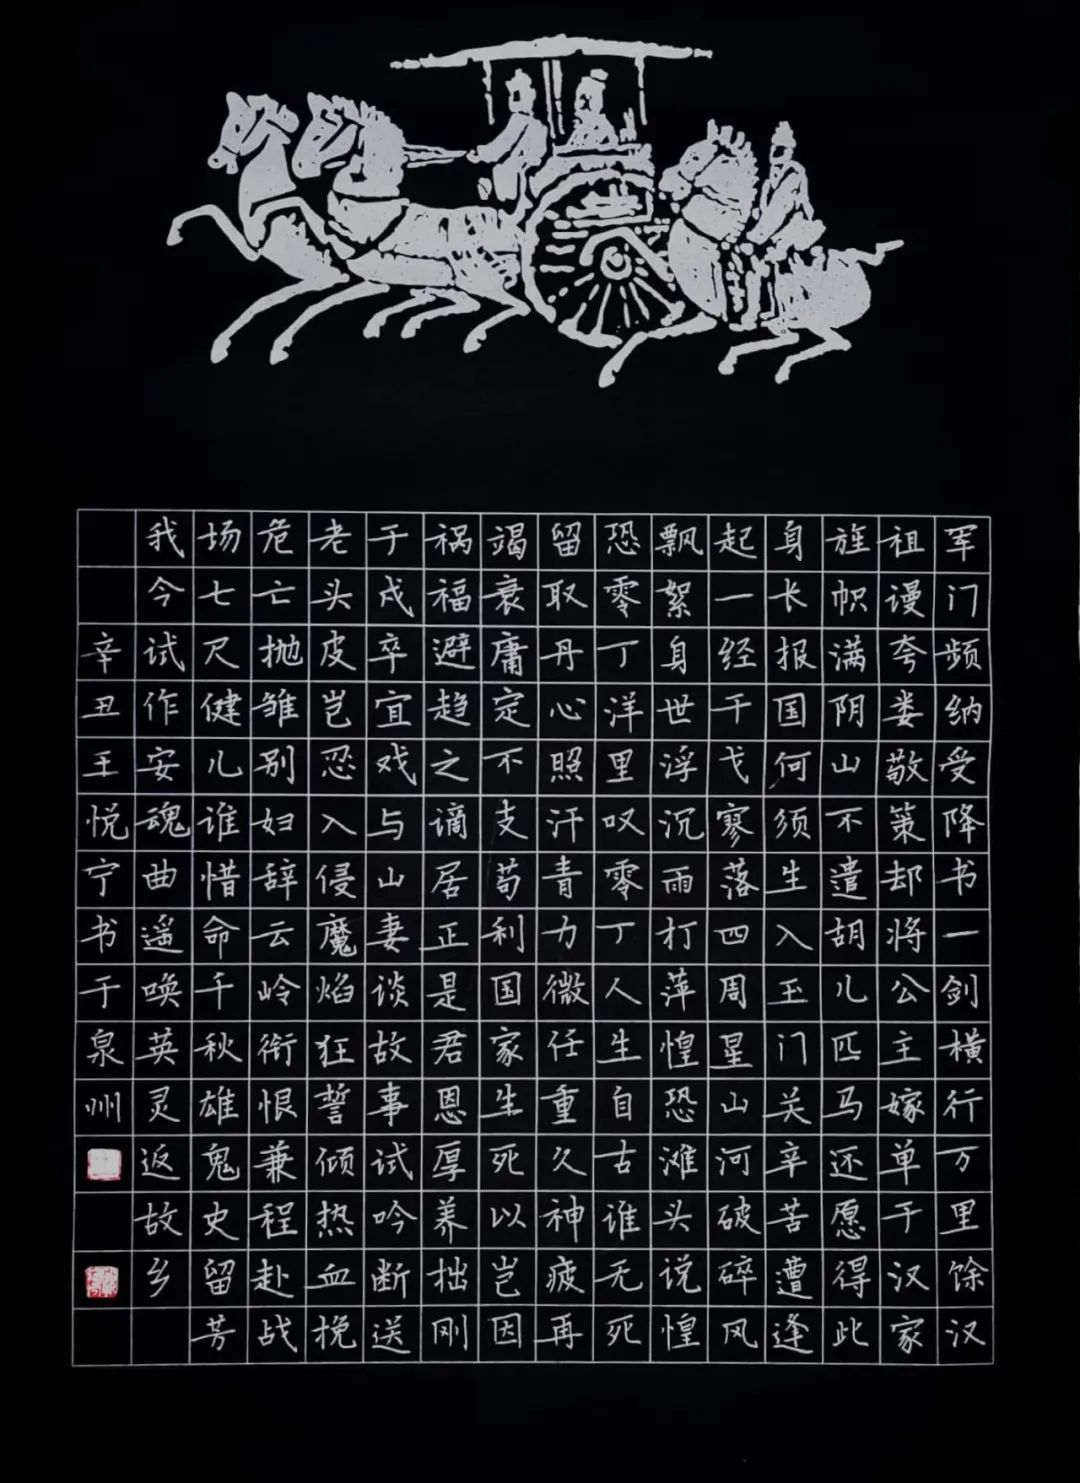 军门频纳受降书一剑横行万里馀汉
祖谩夸娄敬策却将公主嫁单于汉家
旌帜满阴山不遣胡儿匹马还愿得此
身长报国何须生入玉门关辛苦遭逢
起一经干戈寥落四周星山河破碎风
飘絮身世浮沉雨打萍惶恐滩头说惶
恐零丁洋里叹零丁人生自古谁无死
留取丹心照汗青力微任重久神疲再
竭衰庸定不支苟利国家生死以岂因
祸福避趋之谪居正是君恩厚养拙刚
于戍卒宜戏与山妻谈故事试吟断送
老头皮岂忍入侵魔焰狂誓倾热血挽
危亡抛雏别妇辞云岭衔恨兼程赴战
场七尺健儿谁惜命千秋雄鬼史留芳
我今试作安魂曲遥唤英灵返故乡
辛丑王悦宁书于泉州